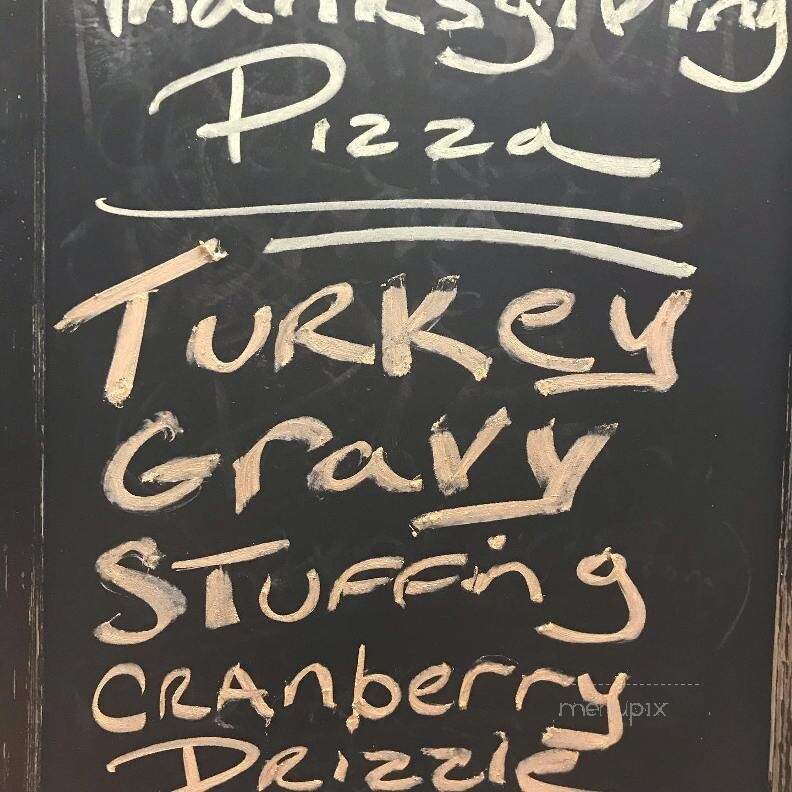 Thanksgiving
Pizza
Turkey
Gravy
Stuffing
Cranberry
menupix
Drizzle